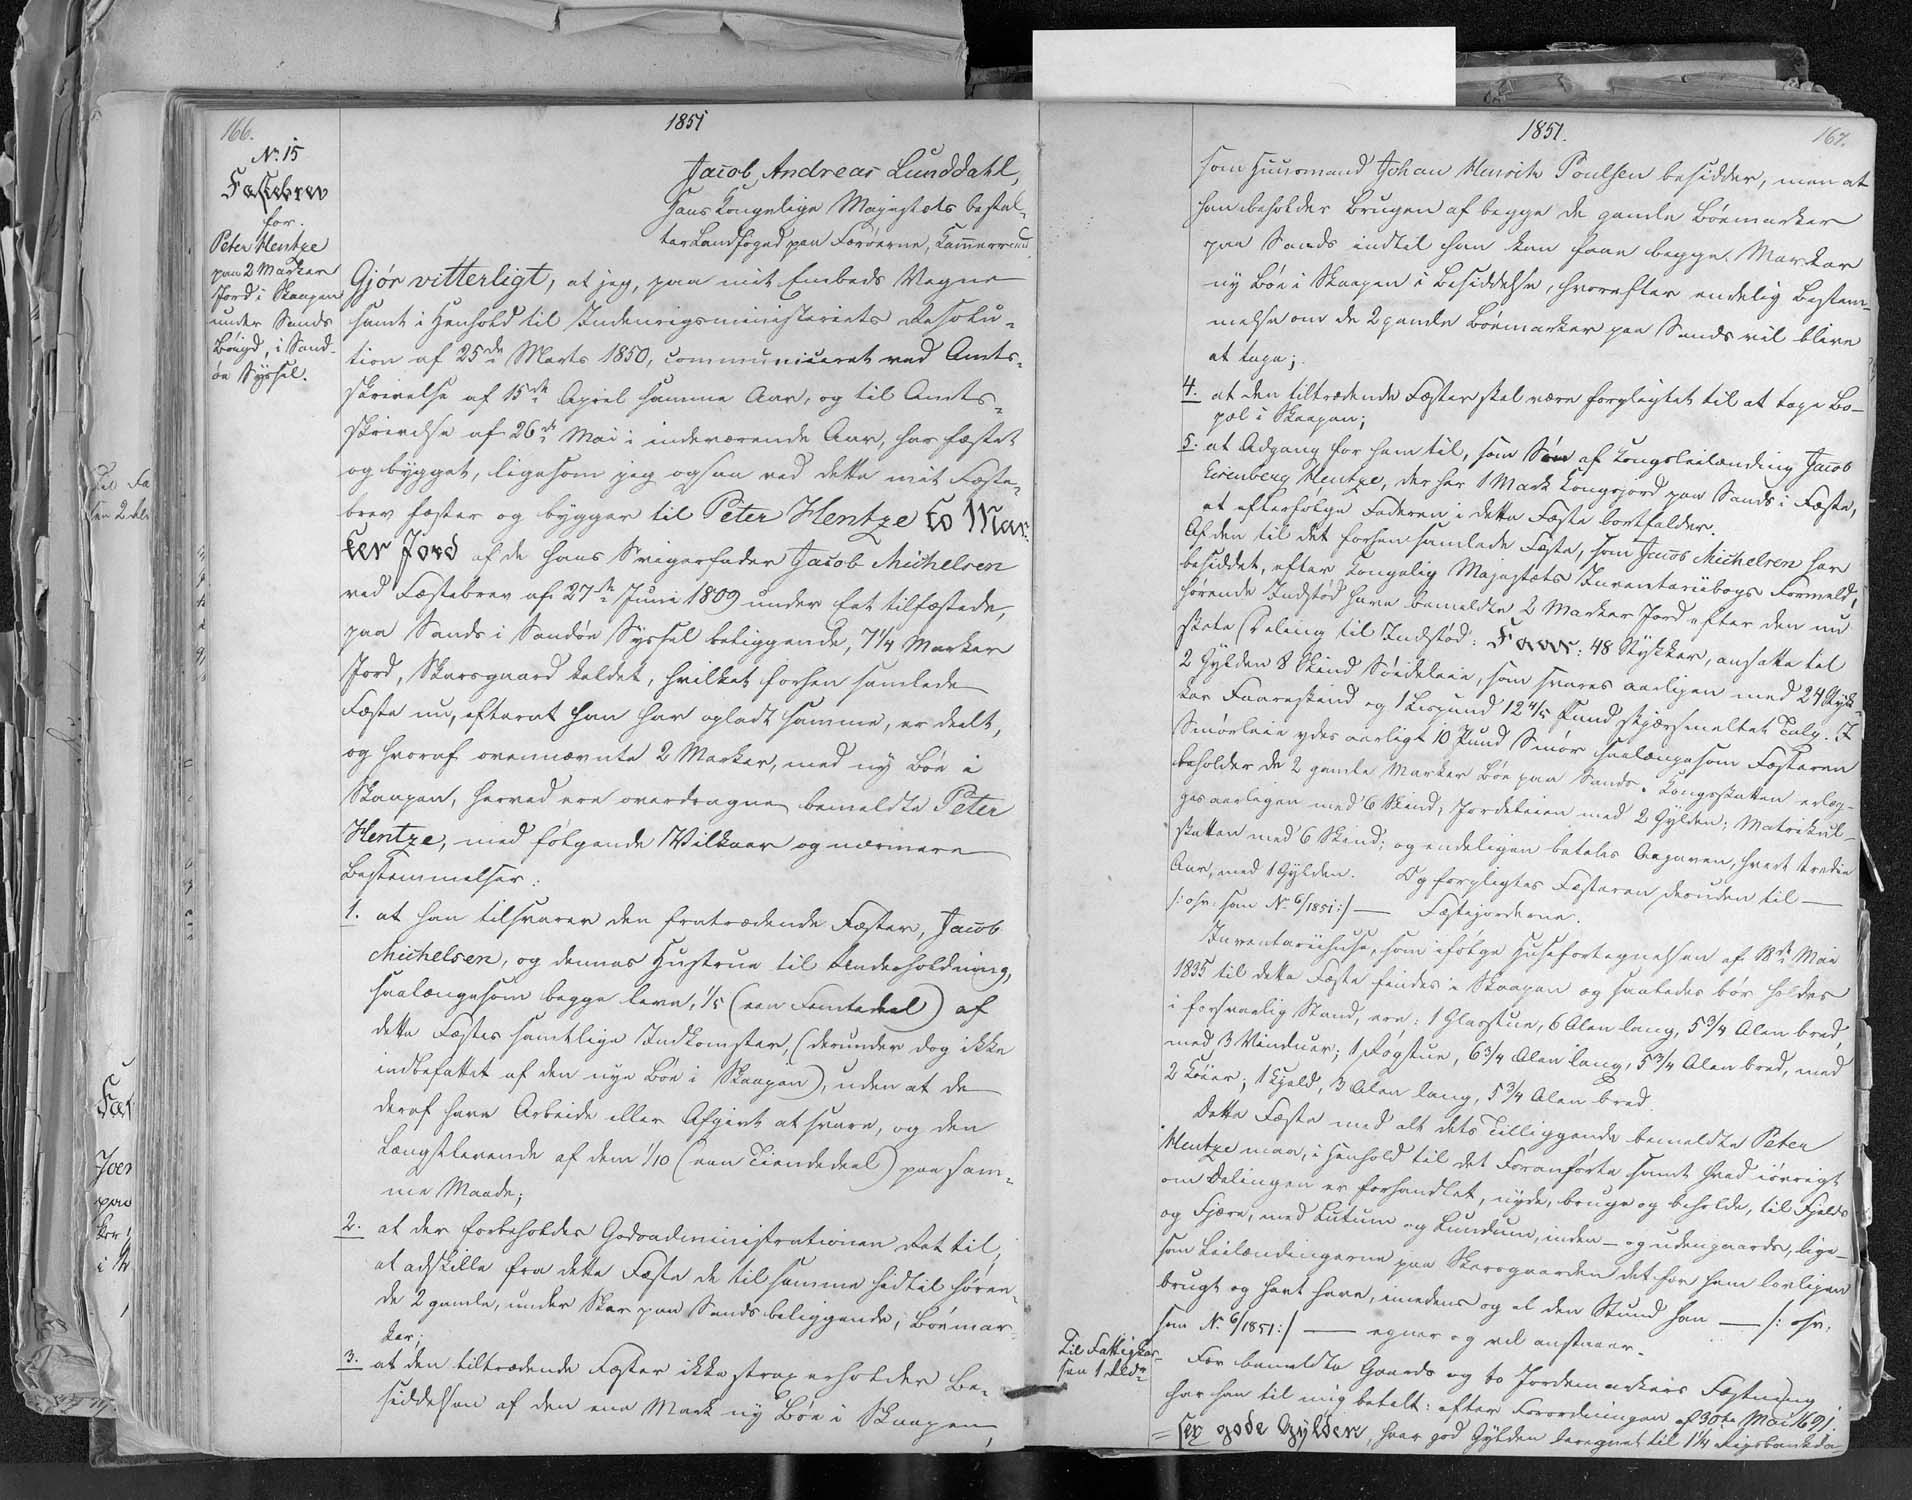 166.
1851
No. 15
Fæstebrev
for
Peter Hentze
paa 2 Marker
Jord i Skaapen
under Sands
Bøigd, i Sand-
øe Syssel.
Jacob Andreas Lunddahl,
Hans Kongelige Majestæts bestal-
ter Landfoged paa Færøerne, Kammerraad
Gjør vitterligt, at jeg, paa mit Embeds Vegne
samt i Henhold til Indenrigsministeriets Resolu-
tion af 25de Marts 1850, communiceret ved Amts-
skrivelse af 15de April samme Aar, og til Amts-
skrivelse af 26de Mai i indeværende Aar, har fæstet
og bygget, ligesom jeg ogsaa ved dette mit Fæste-
brev fæster og bygger til Peter Hentze to Mar-
ker Jord af de hans Svigerfader Jacob Michelsen
ved Fæstebrev af 27de Juni 1809 under Eet tilfæstede,
paa Sands i Sandøe Syssel beliggende, 7 1/4 Marker
Jord, Skarsgaard kaldet, hvilket forhen samlede
Fæste nu, efterat han har opladt samme, er deelt,
og hvoraf ovennævnte 2 Marker, med ny Bøe i
Skaapen, herved ere overdragne bemeldte Peter
Hentze, med følgende Vilkaar og nærmere
Bestemmelser:
1. at han tilsvarer den fratrædende Fæster, Jacob
Michelsen, og dennes Hustrue til Underholdning,
saalængesom begge leve, 1/5 (een Femtedeel) af
dette Fæstes samtlige Indkomster, (derunder dog ikke
indbefattet af den nye Bøe i Skaapen), uden at de
deraf have Arbeide eller Afgivt at svare, og den
Længstlevende af dem 1/10 (een Tiendedeel) paa sam-
me Maade;
2. at der forbeholdes Godsadministrationen Ret til,
at adskille fra dette Fæste de til samme hidtil høren-
de 2 gamle, under Skar paa Sands beliggende, Bømar-
ker;
3. at den tiltrædende Fæster ikke strax erholder Be-
siddelsen af den ene Mark ny Bøe i Skaapen,
1851.
167.
som Huusmand Johan Henrik Poulsen besidder, men at
han beholder Brugen af begge de gamle Bømarker
paa Sands indtil han kan faae begge Marker
ny Bøe i Skaapen i Besiddelse, hvorefter endelig Bestem-
melse om de 2 gamle Bømarker paa Sands vil blive
at tage;
4. at den tiltrædende Fæster skal være forpligtet til at tage Bo-
pæl i Skaapen;
5. at Adgang for ham til, som Søn af Kongsleilænding Jacob
Eisenberg Hentze, der har 1 Mark Kongsjord paa Sands i Fæste,
at efterfølge Faderen i dette Fæste bortfalder.
Af den til det forhen samlede Fæste, som Jacob Michelsen har
besiddet, efter Kongelig Majestæts Inventariibogs Formeld,
hørende Indstød have bemeldte 2 Marker Jord efter den nu
skete Deling til Indstød: Faar: 48 Stykker, ansatte til
2 Gylden 8 Skind Søideleie, som svares aarligen med 24 Styk-
ker Faareskind og 1 Lispund 12 4/5 Pund skjærsmeltet Talg. I
Smørleie ydes aarligt 10 Pund Smør saalængesom Fæsteren
beholder de 2 gamle Marker Bøe paa Sands. Kongsskatten erlæg-
ges aarligen med 6 Skind; Jordeleien med 2 Gylden; Matrikul-
skatten med 6 Skind; og endeligen betales Angaven, hvert tredie
Aar, med 1 Gylden. Og forpligtes Fæsteren desuden til
/: osv. som No. 6/1851:/ Fæstejorderne.
Inventariihuse, som ifølge Husefortegnelsen af 18de Mai
1835 til dette Fæste findes i Skaapen og saaledes bør holdes
i forsvarlig Stand, ere: 1 Glasstue, 6 Alen lang, 5 3/4 Alen bred,
med 3 Vinduer; 1 Røgstue, 6 3/4 Alen lang, 5 3/4 Alen bred, med
2 Køier; 1 Hjald, 3 Alen lang, 5 3/4 Alen bred.
Dette Fæste med alt dets Tilliggende bemeldte Peter
Hentze maa, i Henhold til det Foranførte samt hvad iøvrigt
om Delingen er forhandlet, nyde, bruge og beholde, til Fjelds
og Fjære, med Lutum og Lundum, inden- og udengaards, lige-
som Leilændingerne paa Skarsgaarden det før ham lovligen
brugt og havt have, imedens og al den Stund han /: osv.
som No. 6/1851:/ egner og vel anstaaer.
Til Fattigkas-
sen 1 Rbd
For bemeldte Gaards og to Jordemarkers Fæstning
har han til mig betalt: efter Forordningen af 30te Mai 1691:
= sex gode Gylden, hver god Gylden beregnet til 1 1/4 Rigsbankda